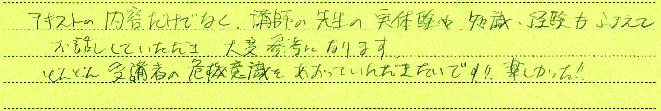 テキストの内容だけでなく、講師の先生の実体験や知識、経験もふまえて
お話ししていただき 大変参考になります
どんどん受講者の危機意識をあおっていただきたいです!! 楽しかった!!